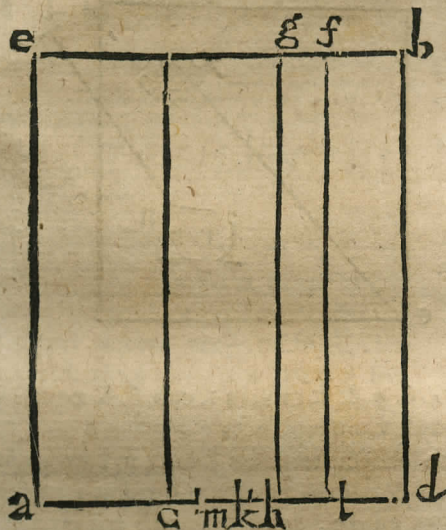 e g f b
a c m k h l d